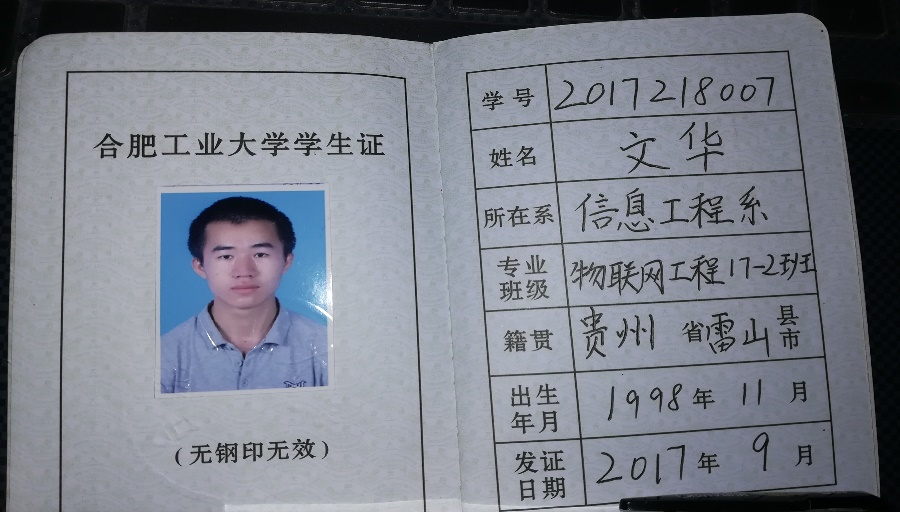 合肥工业大学学生证
(无钢印无效)
学号 2017218007
姓名 文华
所在系 信息工程系
专业班级 物联网工程17-2班
籍贯 贵州省雷山县市
出生年月 1998年11月
发证日期 2017年9月